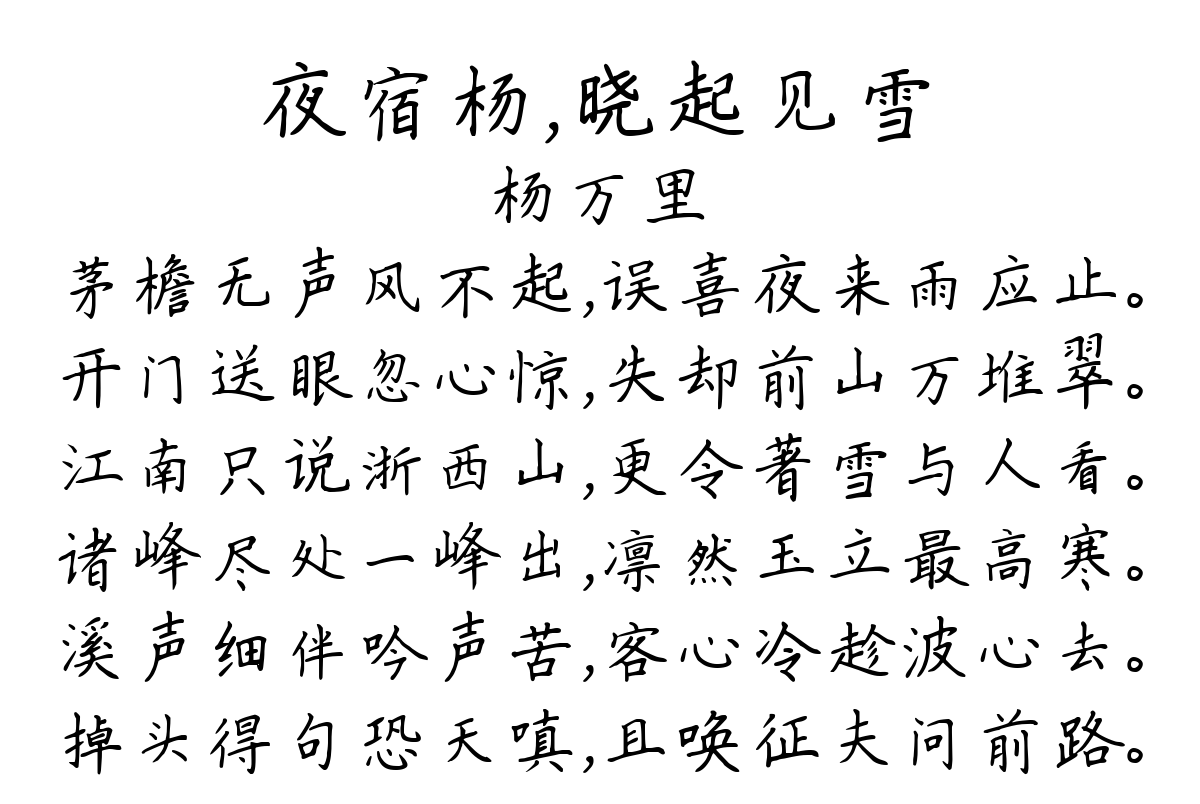 夜宿杨,晓起见雪
杨万里
茅檐无声风不起,误喜夜来雨应止。
开门送眼忽心惊,失却前山万堆翠。
江南只说浙西山,更令著雪与人看。
诸峰尽处一峰出,凛然玉立最高寒。
溪声细伴吟声苦,客心冷趁波心去。
掉头得句恐天嗔,且唤征夫问前路。